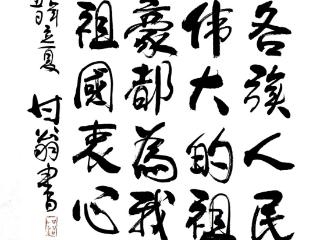 各族人民
伟大的祖
豪都為我
祖國衷心
年立夏
翁書